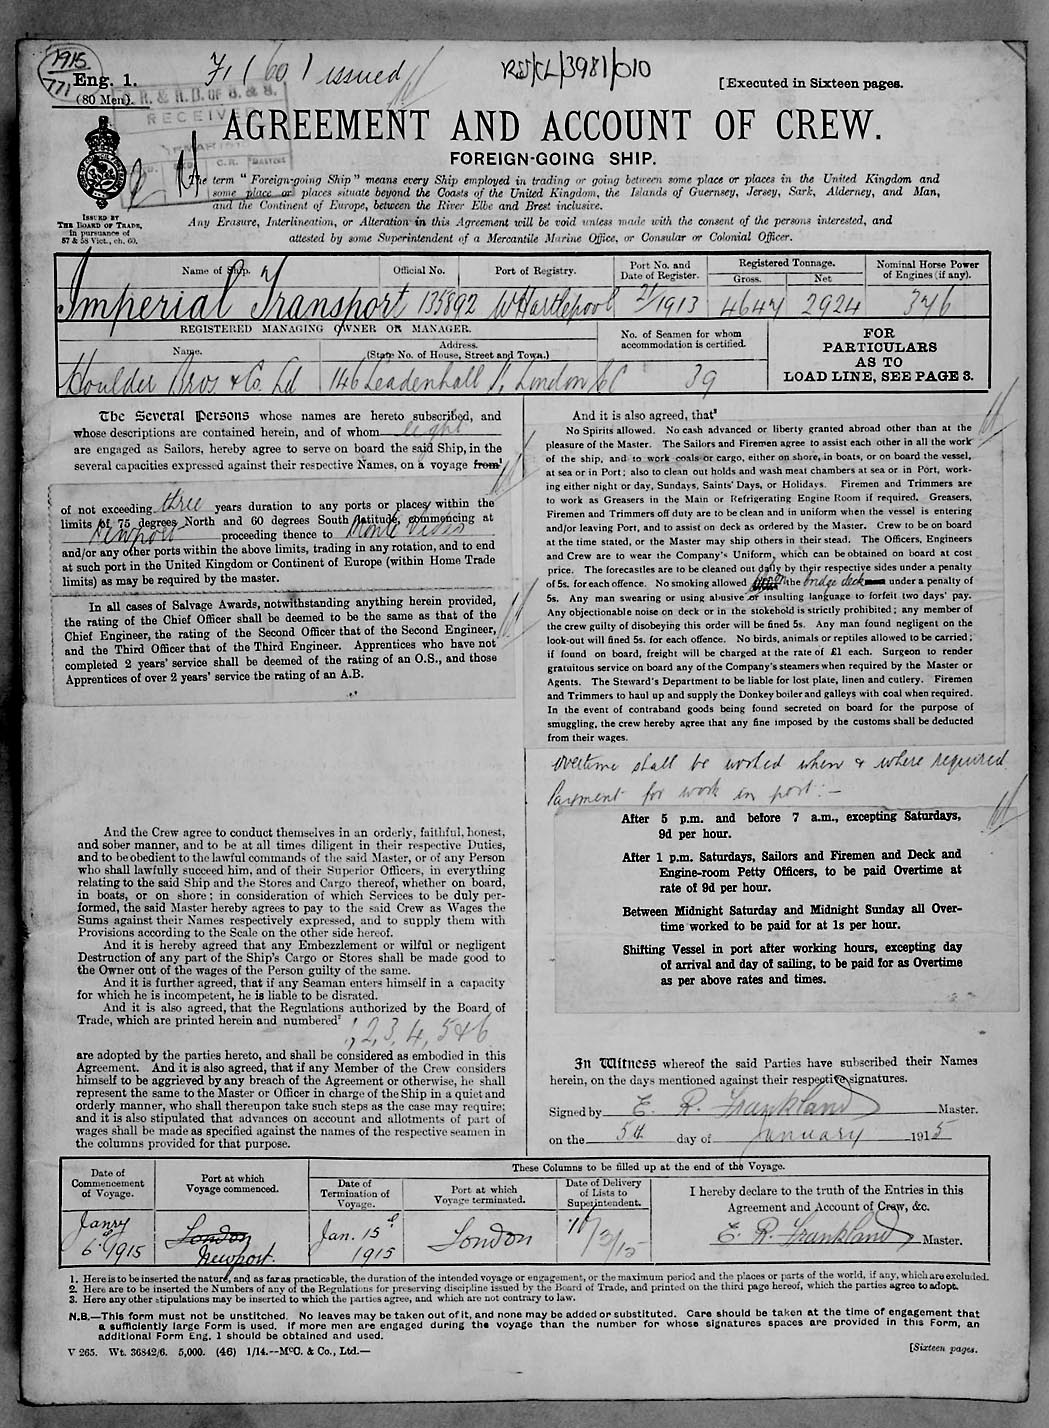 1915
771
Eng. 1.
(80 Men).
F1 (60) issued
RSS/CL/3981/010
[Executed in Sixteen pages.
R. & R.D. OF S. & S.
RECEIVED
C.R.
AGREEMENT AND ACCOUNT OF CREW.
FOREIGN-GOING SHIP.
The term "Foreign-going Ship" means every Ship employed in trading or going between some place or places in the United Kingdom and
some place or places situate beyond the Coasts of the United Kingdom, the Islands of Guernsey, Jersey, Sark, Alderney, and Man,
and the Continent of Europe, between the River Elbe and Brest inclusive.
Any Erasure, Interlineation, or Alteration in this Agreement will be void unless made with the consent of the persons interested, and
attested by some Superintendent of a Mercantile Marine Office, or Consular or Colonial Officer.
ISSUED BY
THE BOARD OF TRADE,
in pursuance of
57 & 58 Vict., ch. 60.
Name of Ship.
Official No.
Port of Registry.
Port No. and
Date of Register.
Registered Tonnage.
Gross.
Net
Nominal Horse Power
of Engines (if any).
Imperial Transport 135892 W Hartlepool 21/1913 4647 2924 376
REGISTERED MANAGING OWNER OR MANAGER.
Name.
Address.
(State No. of House, Street and Town.)
No. of Seamen for whom
accommodation is certified.
FOR
PARTICULARS
AS TO
LOAD LINE, SEE PAGE 3.
Houlder Bros & Co. Ld 146 Leadenhall St. London EC 39
The Several Persons whose names are hereto subscribed, and
whose descriptions are contained herein, and of whom eight
are engaged as Sailors, hereby agree to serve on board the said Ship, in the
several capacities expressed against their respective Names, on a voyage from¹
of not exceeding three years duration to any ports or places within the
limits of 75 degrees North and 60 degrees South latitude, commencing at
Newport proceeding thence to Monte Video
and/or any other ports within the above limits, trading in any rotation, and to end
at such port in the United Kingdom or Continent of Europe (within Home Trade
limits) as may be required by the master.
In all cases of Salvage Awards, notwithstanding anything herein provided,
the rating of the Chief Officer shall be deemed to be the same as that of the
Chief Engineer, the rating of the Second Officer that of the Second Engineer,
and the Third Officer that of the Third Engineer. Apprentices who have not
completed 2 years' service shall be deemed of the rating of an O.S., and those
Apprentices of over 2 years' service the rating of an A.B.
And the Crew agree to conduct themselves in an orderly, faithful, honest,
and sober manner, and to be at all times diligent in their respective Duties,
and to be obedient to the lawful commands of the said Master, or of any Person
who shall lawfully succeed him, and of their Superior Officers, in everything
relating to the said Ship and the Stores and Cargo thereof, whether on board,
in boats, or on shore; in consideration of which Services to be duly per-
formed, the said Master hereby agrees to pay to the said Crew as Wages the
Sums against their Names respectively expressed, and to supply them with
Provisions according to the Scale on the other side hereof.
And it is hereby agreed that any Embezzlement or wilful or negligent
Destruction of any part of the Ship's Cargo or Stores shall be made good to
the Owner out of the wages of the Person guilty of the same.
And it is further agreed, that if any Seaman enters himself in a capacity
for which he is incompetent, he is liable to be disrated.
And it is also agreed, that the Regulations authorized by the Board of
Trade, which are printed herein and numbered²
1, 2, 3, 4, 5 & 6
are adopted by the parties hereto, and shall be considered as embodied in this
Agreement. And it is also agreed, that if any Member of the Crew considers
himself to be aggrieved by any breach of the Agreement or otherwise, he shall
represent the same to the Master or Officer in charge of the Ship in a quiet and
orderly manner, who shall thereupon take such steps as the case may require;
and it is also stipulated that advances on account and allotments of part of
wages shall be made as specified against the names of the respective seamen in
the columns provided for that purpose.
And it is also agreed, that³
No Spirits allowed. No cash advanced or liberty granted abroad other than at the
pleasure of the Master. The Sailors and Firemen agree to assist each other in all the work
of the ship, and to work coals or cargo, either on shore, in boats, or on board the vessel,
at sea or in Port; also to clean out holds and wash meat chambers at sea or in Port, work-
ing either night or day, Sundays, Saints' Days, or Holidays. Firemen and Trimmers are
to work as Greasers in the Main or Refrigerating Engine Room if required. Greasers,
Firemen and Trimmers off duty are to be clean and in uniform when the vessel is entering
and/or leaving Port, and to assist on deck as ordered by the Master. Crew to be on board
at the time stated, or the Master may ship others in their stead. The Officers, Engineers
and Crew are to wear the Company's Uniform, which can be obtained on board at cost
price. The forecastles are to be cleaned out daily by their respective sides under a penalty
of 5s. for each offence. No smoking allowed upon the bridge deck under a penalty of
5s. Any man swearing or using abusive or insulting language to forfeit two days' pay.
Any objectionable noise on deck or in the stokehold is strictly prohibited; any member of
the crew guilty of disobeying this order will be fined 5s. Any man found negligent on the
look-out will fined 5s. for each offence. No birds, animals or reptiles allowed to be carried;
if found on board, freight will be charged at the rate of £1 each. Surgeon to render
gratuitous service on board any of the Company's steamers when required by the Master or
Agents. The Steward's Department to be liable for lost plate, linen and cutlery. Firemen
and Trimmers to haul up and supply the Donkey boiler and galleys with coal when required.
In the event of contraband goods being found secreted on board for the purpose of
smuggling, the crew hereby agree that any fine imposed by the customs shall be deducted
from their wages.
overtime shall be worked when & where required
Payment for work in port:-
After 5 p.m. and before 7 a.m., excepting Saturdays,
9d per hour.
After 1 p.m. Saturdays, Sailors and Firemen and Deck and
Engine-room Petty Officers, to be paid Overtime at
rate of 9d per hour.
Between Midnight Saturday and Midnight Sunday all Over-
time worked to be paid for at 1s per hour.
Shifting Vessel in port after working hours, excepting day
of arrival and day of sailing, to be paid for as Overtime
as per above rates and times.
In Witness whereof the said Parties have subscribed their Names
herein, on the days mentioned against their respective signatures.
Signed by E. R. Frankland Master.
on the 5th day of January 1915
Date of
Commencement
of Voyage.
Port at which
Voyage commenced.
These Columns to be filled up at the end of the Voyage.
Date of
Termination of
Voyage.
Port at which
Voyage terminated.
Date of Delivery
of Lists to
Superintendent.
I hereby declare to the truth of the Entries in this
Agreement and Account of Crew, &c.
Janry
6th 1915
London
Newport.
Jan. 15th
1915
London
11/3/15
E. R. Frankland Master.
1. Here is to be inserted the nature, and as far as practicable, the duration of the intended voyage or engagement, or the maximum period and the places or parts of the world, if any, which are excluded.
2. Here are to be inserted the Numbers of any of the Regulations for preserving discipline issued by the Board of Trade, and printed on the third page hereof, which the parties agree to adopt.
3. Here any other stipulations may be inserted to which the parties agree, and which are not contrary to law.
N.B.—This form must not be unstitched. No leaves may be taken out of it, and none may be added or substituted. Care should be taken at the time of engagement that
a sufficiently large Form is used. If more men are engaged during the voyage than the number for whose signatures spaces are provided in this Form, an
additional Form Eng. 1 should be obtained and used.
V 265. Wt. 36842/6. 5,000. (46) 1/14.--McC. & Co., Ltd.—
[Sixteen pages.